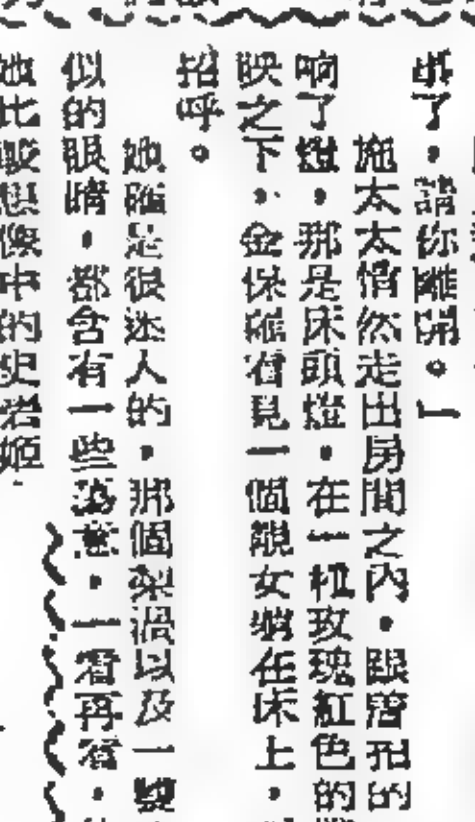 了，請你離開。」
施太太悄然走出房間之內，跟着拍的
响了燈，那是床頭燈，在一種玫瑰紅色的
映之下，金保羅看見一個靚女躺在床上，
招呼。
她確是很迷人的，那個梨渦以及一雙
似的眼睛，都含有一些蕩意，一看再看，
她比較想像中的史岩姬